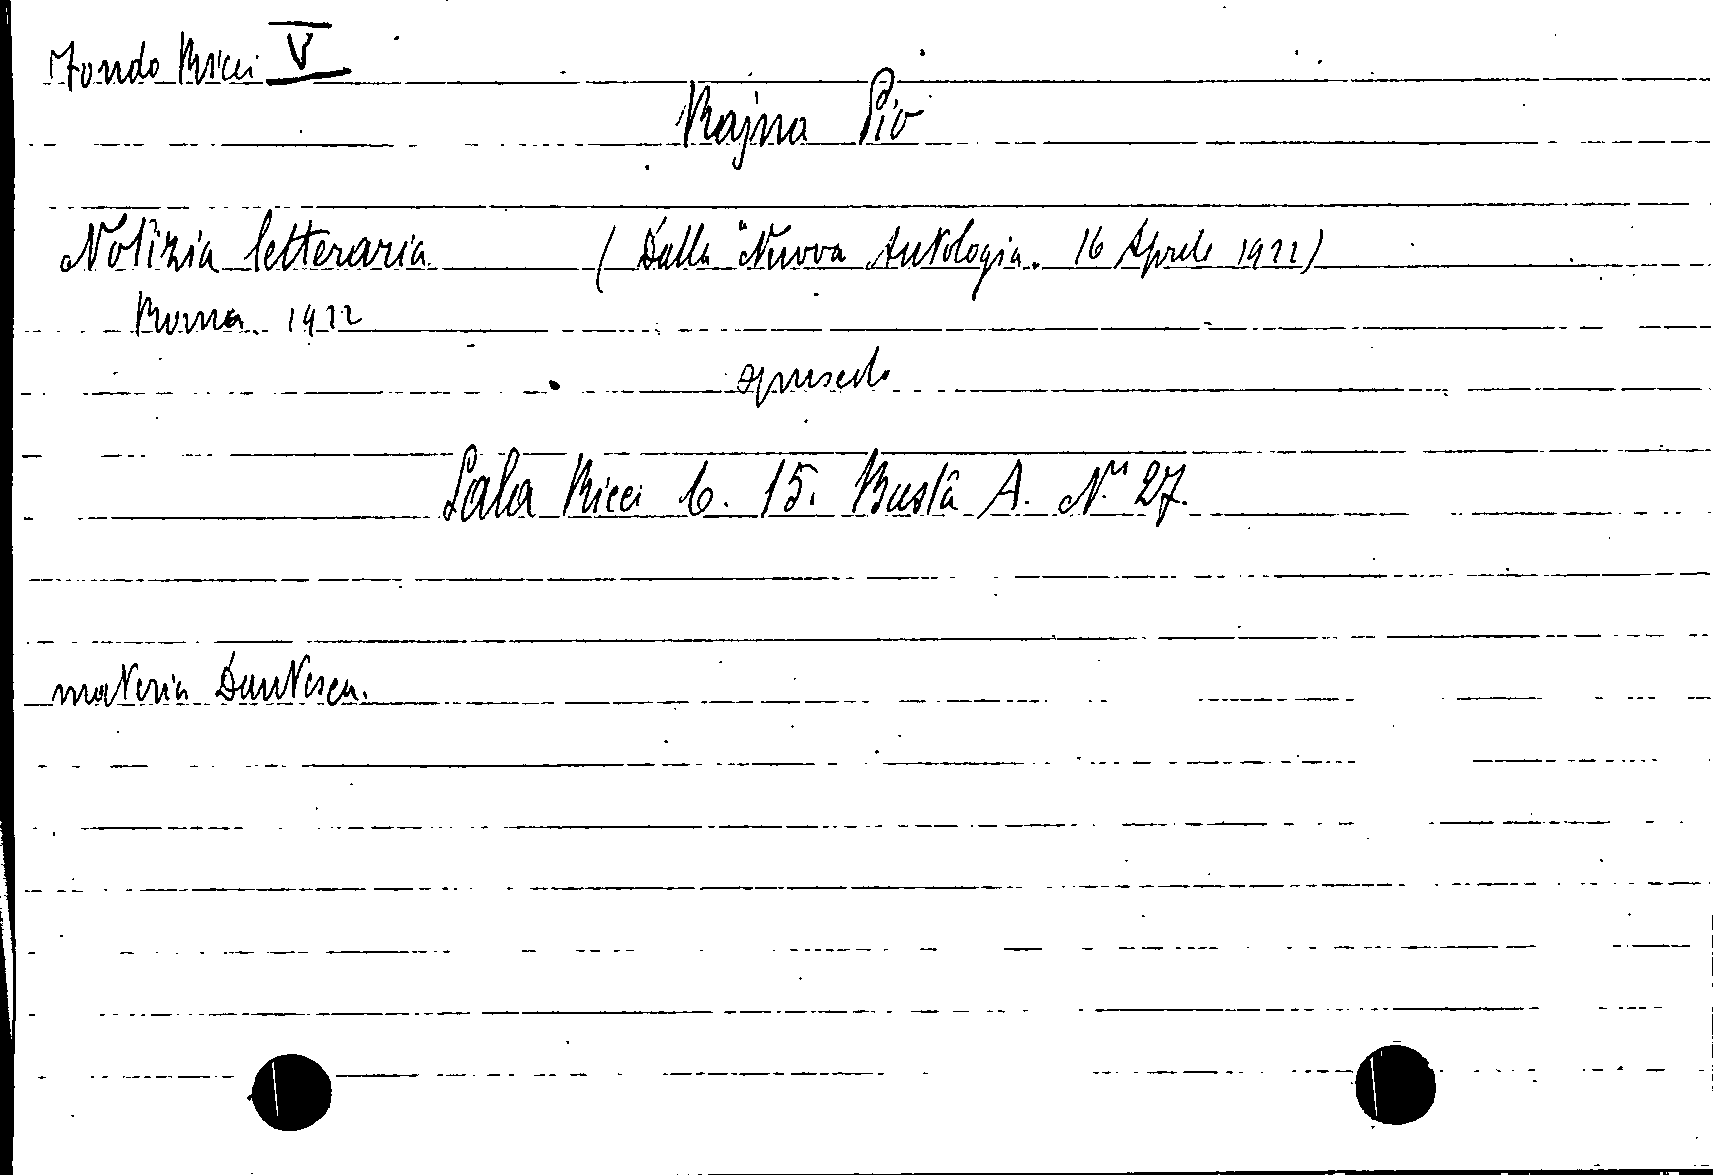 Fondo Ricci V
Rajna Pio
Notizia letteraria (Dalla "Nuova Antologia. 16 Aprile 1922)
Roma. 1922
opuscolo
Sala Ricci 6. 15. Busta A. N. 27.
materia Dantesca.